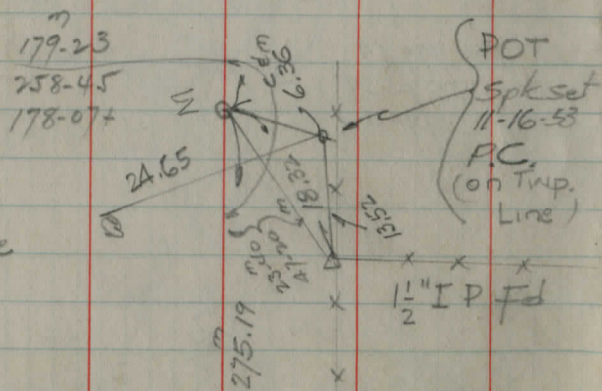 m
179-23
258-45
178-07+
24.65
6.36
18.32
13.52
47-20
23-40
m
275.19
POT
Spk set
11-16-53
P.C.
(on Twp.
Line)
1 1/2" I P Fd